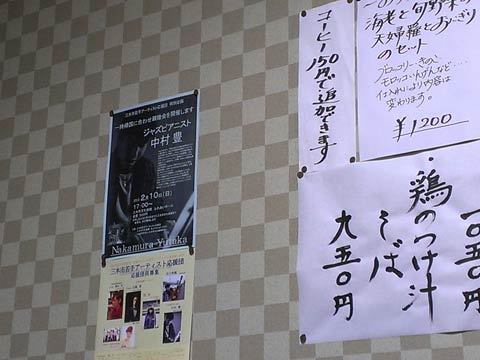 三木市若手アーティスト応援団 特別企画
一時帰国に合わせ親睦会を開催します
ジャズピアニスト
中村 豊
2月10日(日)
17:00〜
Nakamura Yutaka
三木市若手アーティスト応援団
応援団員募集
コーヒー150円で追加できます
海老と旬野菜の
天婦羅とおにぎり
のセット
ブロッコリー・きのこ、
モロッコいんげんなど・・・・
仕入れにより内容は
変わります。
¥1200
鶏のつけ汁
そば
九五〇円
一〇五〇円